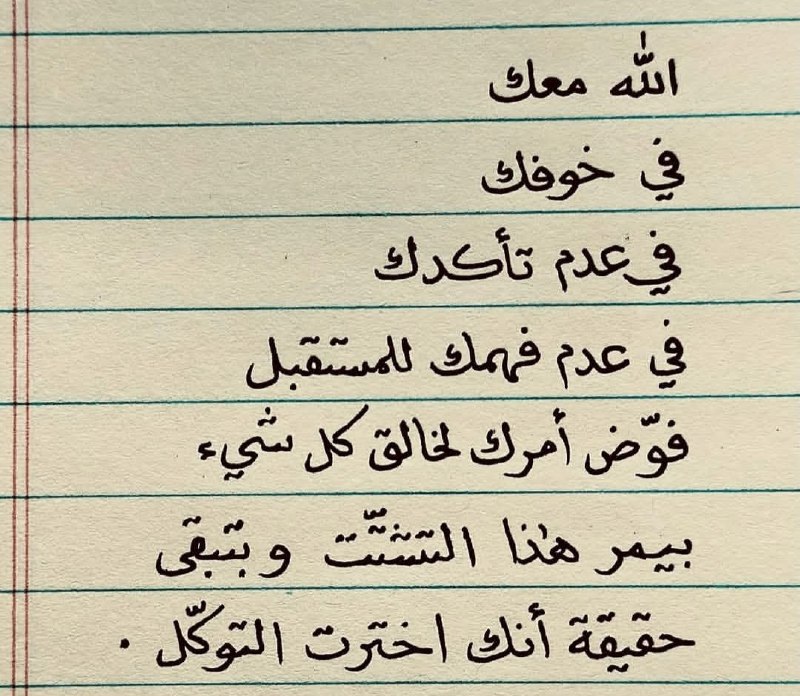 الله معك
في خوفك
في عدم تأكدك
في عدم فهمك للمستقبل
فوّض أمرك لخالق كل شيء
بيمر هذا التشتّت وبتبقى
حقيقة أنك اخترت التوكّل .